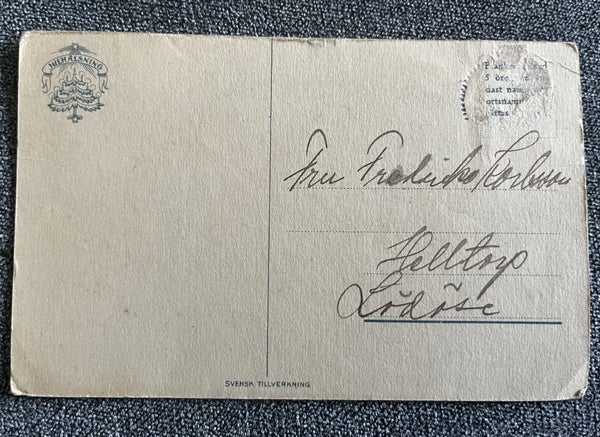 JULHÄLSNING
5 öre
dast namn
ortsnamn
Fru Fredrika
Helltorp
Lödöse
SVENSK TILLVERKNING